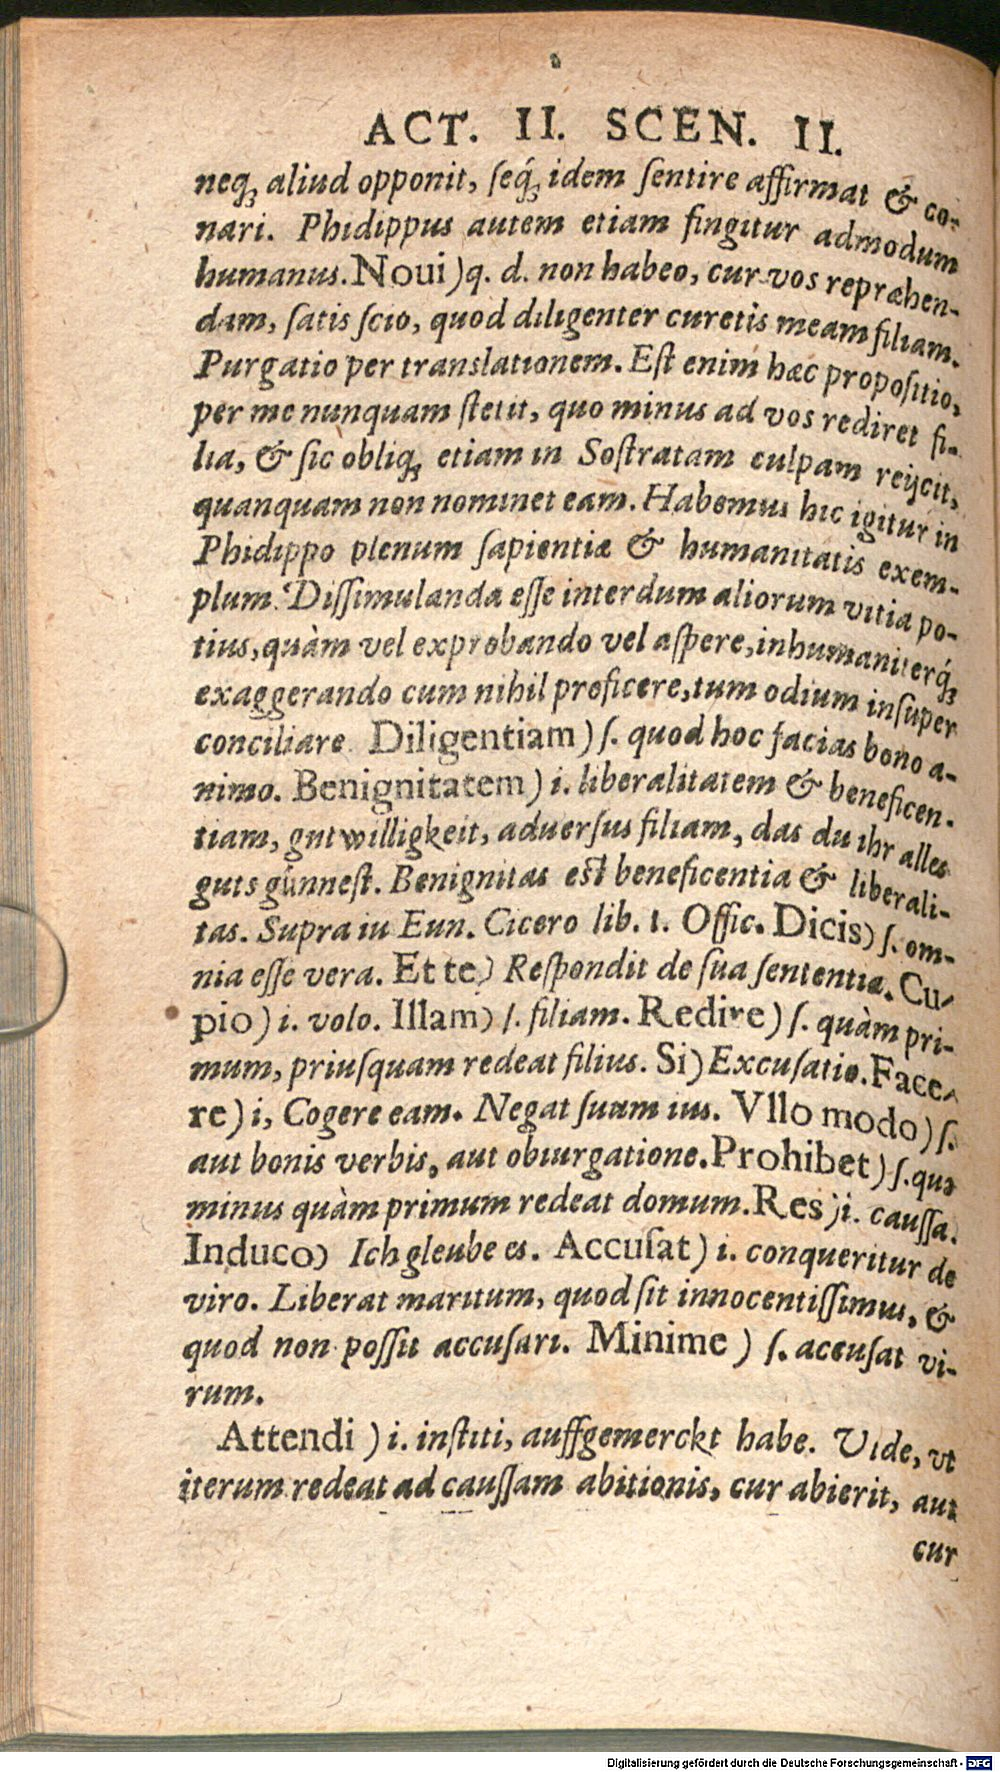 ACT. II. SCEN. II.
neq; aliud opponit, ſeq́; idem ſentire affirmat & co-
nari. Phidippus autem etiam fingitur admodum
humanus. Noui) q. d. non habeo, cur vos repræhen-
dam, ſatis ſcio, quod diligenter curetis meam filiam.
Purgatio per translationem. Eſt enim hæc propoſitio,
per me nunquam ſtetit, quo minus ad vos rediret fi-
lia, & ſic obliq; etiam in Soſtratam culpam reijcit,
quanquam non nominet eam. Habemus hic igitur in
Phidippo plenum ſapientiæ & humanitatis exem-
plum. Diſſimulanda eſſe interdum aliorum vitia po-
tius, quàm vel exprobando vel aſpere, inhumaniterq́;
exaggerando cum nihil proficere, tum odium inſuper
conciliare. Diligentiam) ſ. quod hoc facias bono a-
nimo. Benignitatem) i. liberalitatem & beneficen-
tiam, gutwilligkeit, aduerſus filiam, das du ihr alles
guts günneſt. Benignitas eſt beneficentia & liberali-
tas. Supra iu Eun. Cicero lib. 1. Offic. Dicis) ſ. om-
nia eſſe vera. Et te) Reſpondit de ſua ſententia. Cu-
pio) i. volo. Illam) ſ. filiam. Redire) ſ. quàm pri-
mum, priuſquam redeat filius. Si) Excuſatio. Face-
re) i, Cogere eam. Negat ſuum ius. Vllo modo) ſ.
aut bonis verbis, aut obiurgatione. Prohibet) ſ. quo
minus quàm primum redeat domum. Res) i. cauſſa.
Induco) Ich gleube es. Accuſat) i. conqueritur de
viro. Liberat maritum, quod ſit innocentiſſimus, &
quod non poſſit accuſari. Minime) ſ. accuſat vi-
rum.
Attendi) i. inſtiti, auffgemerckt habe. Vide, vt
iterum redeat ad cauſſam abitionis, cur abierit, aut
cur
Digitalisierung gefördert durch die Deutsche Forschungsgemeinschaft - DFG